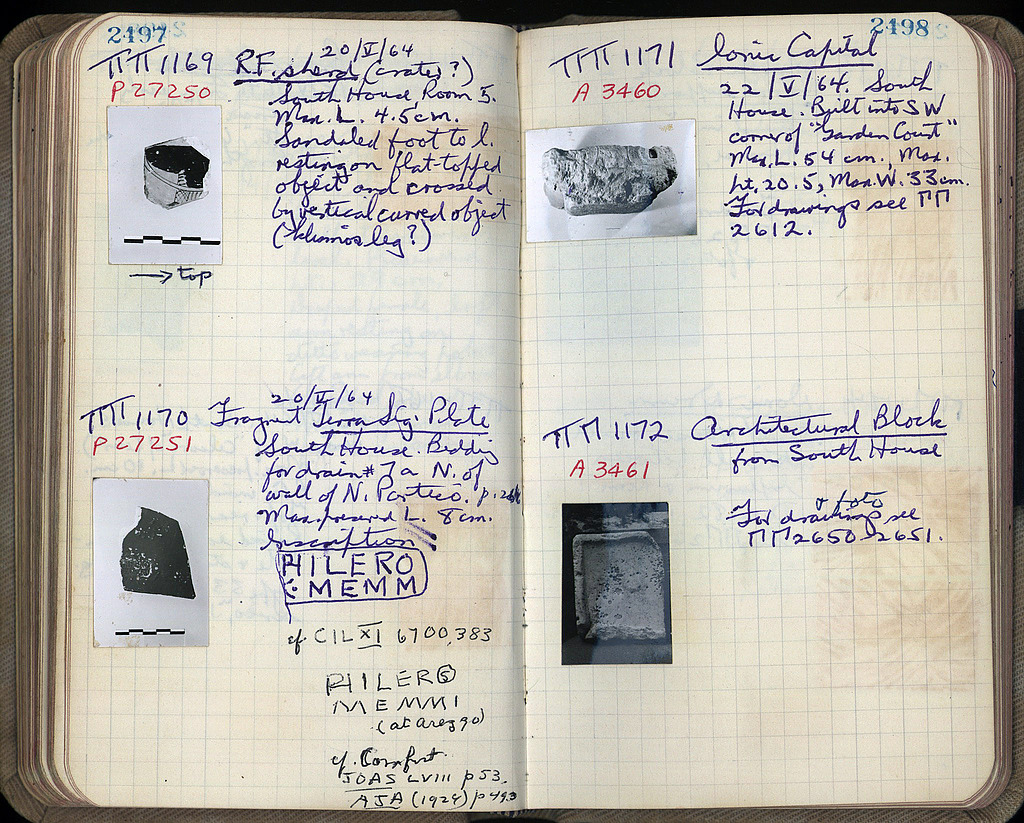 2497
ΠΠ 1169
20/V/64
P 27250
R.F. sherd (crater?)
South House, Room 5.
Max. L. 4.5 cm.
Sandaled foot to l.
resting on flat-topped
object and crossed
by vertical curved object
(klismos leg?)
→ top
20/V/64
ΠΠ 1170
P 27251
Fragment Terra Sig. Plate
South House. Bedding
for drain # 7a N. of
wall of N. Portico.
Max. preserved L. 8 cm.
Inscription
PHILERO
MEMM
cf. CIL XI 6700, 383
PHILERO S
MEMMI
(at Arezzo)
cf. Comfort
JOAS LVIII p 53.
AJA (1929) p 493
2498
ΠΠ 1171
A 3460
Ionic Capital
22/V/64. South
House. Built into SW
corner of "Garden Court"
Max. L. 54 cm., Max.
ht. 20.5, Max. W. 33 cm.
For drawings see ΠΠ
2612.
ΠΠ 1172
A 3461
Architectural Block
from South House
& foto
For drawings see
ΠΠ 2650-2651.